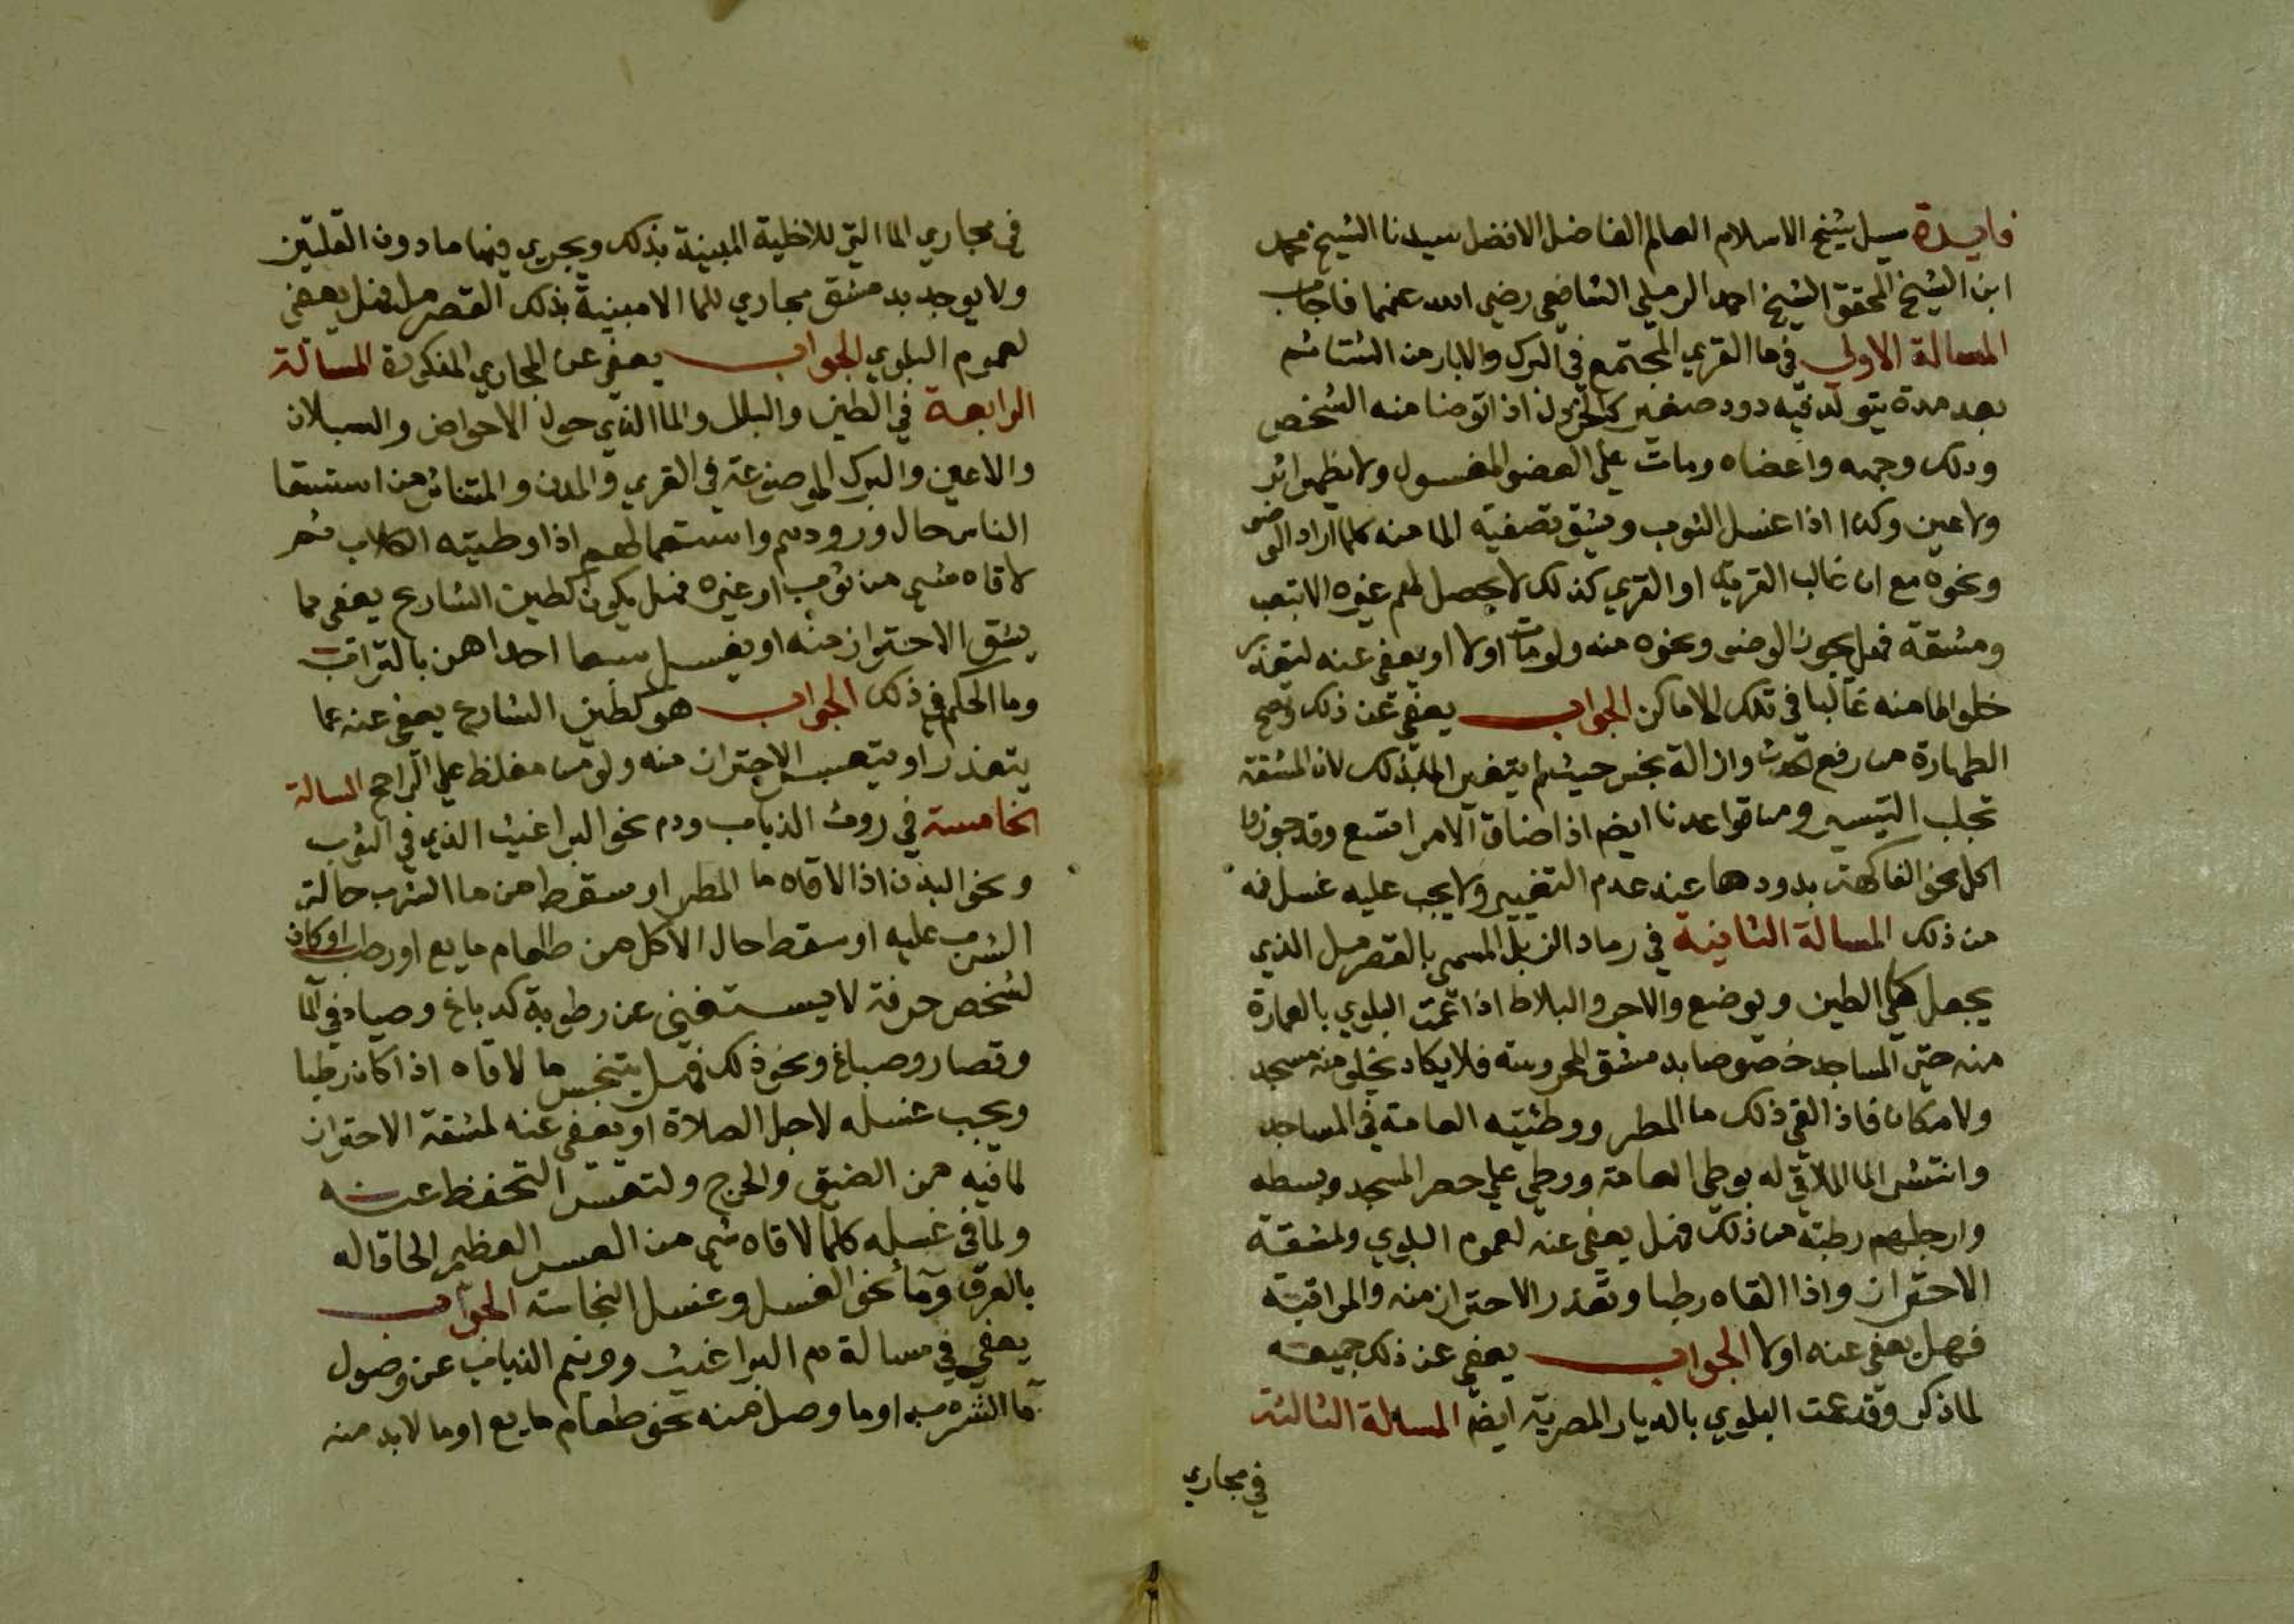 فايدة سيل شيخ الاسلام العالم الفاضل الافضل سيدنا الشيخ محمد
ابن الشيخ المحقق الشيخ احمد الرملي الشافعي رضي الله عنهما فاجاب
المسالة الاولي في ما القري المجتمع في البرك والابار من الشتا ثم
بعد مدة يتولد فيه دود صغير اذا توضا منه الشخص
ودلك وجهه واعضاه ومات علي العضو المغسول ولا يظهر اثر
ولا عين وكذا اذا غسل الثوب ويشق تصفية الما منه كلما اراد الوضو
ونحوه مع ان غالب القرية او القري كذلك لا يحصل لهم غيره الا بتعب
ومشقة فهل يجوز الوضو ونحوه منه ولو مات اولا او يعفي عنه لتعذر
خلو الما منه غالبا في تلك الاماكن الجواب يعفي عن ذلك وتصح
الطهارة من رفع حدث وازالة نجس حيث لم يتغير الما بذلك لان المشقة
تجلب التيسير ومن قواعدنا ايضا اذا ضاق الامر اتسع وقد جوزوا
اكل نحو الفاكهة بدودها عند عدم التغيير ولا يجب عليه غسل فمه
من ذلك المسالة الثانية في رماد الزبل المسمي بالقصرمل الذي
يجعل علي الطين ويوضع والاجر والبلاط اذا عمت البلوي بالعمارة
منه حتي المساجد خصوصا بدمشق المحروسة فلا يكاد يخلو منه مسجد
ولا مكان فاذا لقي ذلك ما المطر ووطئته العامة في المساجد
وانتشر الما الملاقي له بوطي العامة ووطي علي حصر المسجد وبسطه
وارجلهم رطبة من ذلك فهل يعفي عنه لعموم البلوي ولمشقة
الاحتراز واذا القاه رطبا وتعذر الاحتراز منه والمراقبة
فهل يعفي عنه اولا الجواب يعفي عن ذلك جميعه
لما ذكر وقد عمت البلوي بالديار المصرية ايضا المسالة الثالثة
في مجاري
في مجاري الما التي للاخلية المبنية بذلك ويجري فيها ما دون القلتين
ولا يوجد بدمشق مجاري للما الا مبنية بذلك القصرمل فهل يعفي
لعموم البلوي الجواب يعفي عن المجاري المذكورة المسالة
الرابعة في الطين والبلل والما الذي حول الاحواض والسبلان
والاعين والبرك الموضوعة في القري والمدن والمتناثر من استسقا
الناس حال ورودهم واستعمالهم اذا وطيته الكلاب ثم
لاقاه شي من ثوب او غيره فهل يكون كطين الشارع يعفي عما
يشق الاحتراز منه او يغسل سبعا احداهن بالتراب
وما الحكم في ذلك الجواب هو كطين الشارع يعفي عنه عما
يتعذر او يتعسر الاحتراز منه ولو من مغلظ علي الراجح المسالة
الخامسة في روث الذباب ودم نحو البراغيث الذي في الثوب
ونحو البدن اذا لاقاه ما المطر او سقط من ما الشرب حالة
الشرب عليه او سقط حال الاكل من طعام مايع او رطب او كان
لشخص حرفة لا يستغني عن رطوبة كدباغ وصياد في الما
وقصار وصباغ ونحو ذلك فهل يتنجس ما لاقاه اذا كان رطبا
ويجب غسله لاجل الصلاة او يعفي عنه لمشقة الاحتراز
لما فيه من الضيق والحرج ولتعسر التحفظ عنه
ولما في غسله كلما لاقاه شي من العسر العظيم الحاقا له
بالعرق وما نحو الغسل وغسل النجاسة الجواب
يعفي في مسالة دم البراغيث وونيم الذباب عن وصول
ما الشرب او ما وصل منه نحو طعام مايع او ما لا بد منه